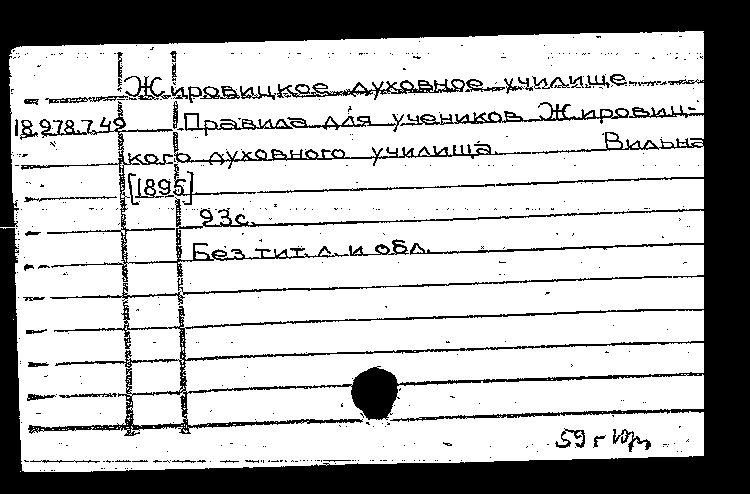 Жировицкое духовное училище
18.978.7.49 Правила для учеников Жировиц-
кого духовного училища. Вильна
[1895]
93с.
Без тит. л. и обл.
59 г